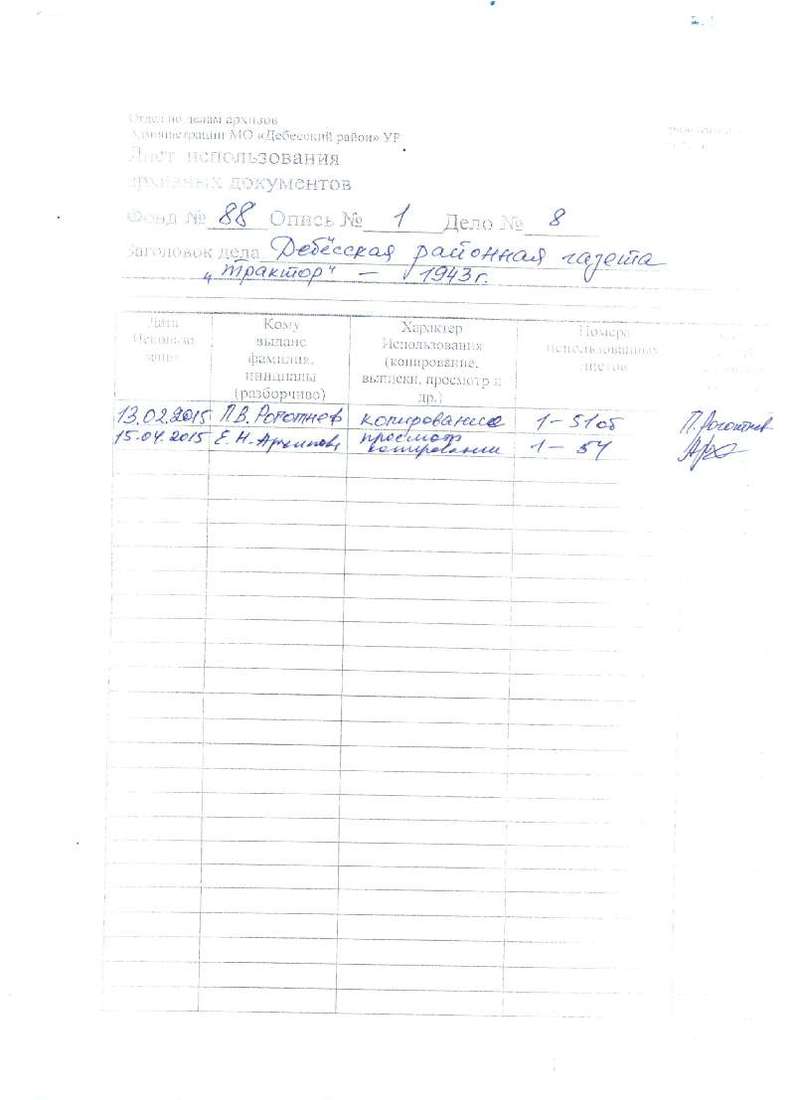 Отдел по делам архивов
Администрации МО «Дебесский район» УР
Лист использования
архивных документов
Фонд № 88 Опись № 1 Дело № 8
Заголовок дела Дебёсская районная газета
„Трактор“ — 1943г.
Дата Кому Характер Номера
выдано Использования использованных
фамилия, (копирование, листов
инициалы выписки, просмотр и
(разборчиво) др.)
13.02.2015 копирование 1-51об
15.04.2015 просмотр 1 - 54
копирование